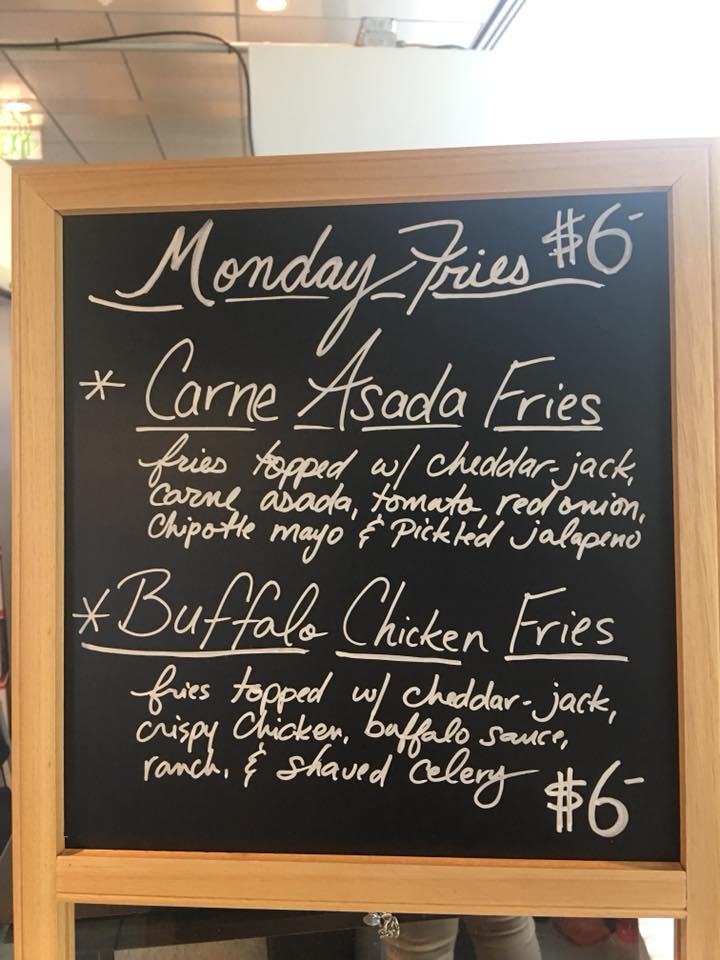 Monday Fries $6-
* Carne Asada Fries
fries topped w/ cheddar-jack,
carne asada, tomato, red onion,
chipotle mayo & Pickled jalapeno
* Buffalo Chicken Fries
fries topped w/ cheddar-jack,
crispy Chicken, buffalo sauce,
ranch, & shaved Celery
$6-